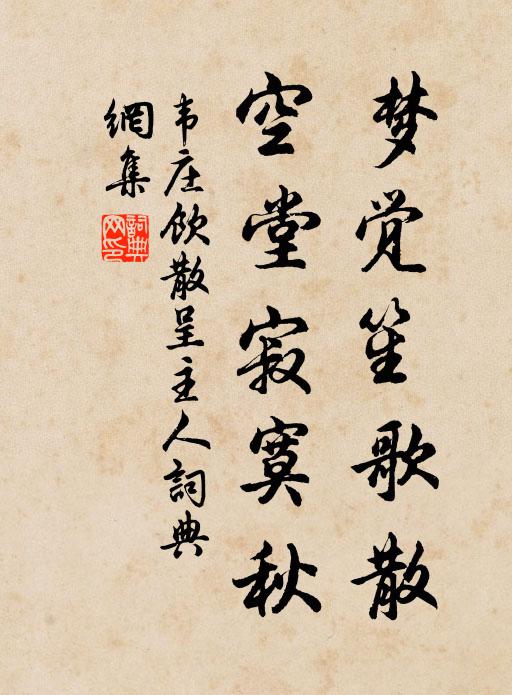 梦觉笙歌散
空堂寂寞秋
韦庄饮散呈主人詞典
網集
詞典网印